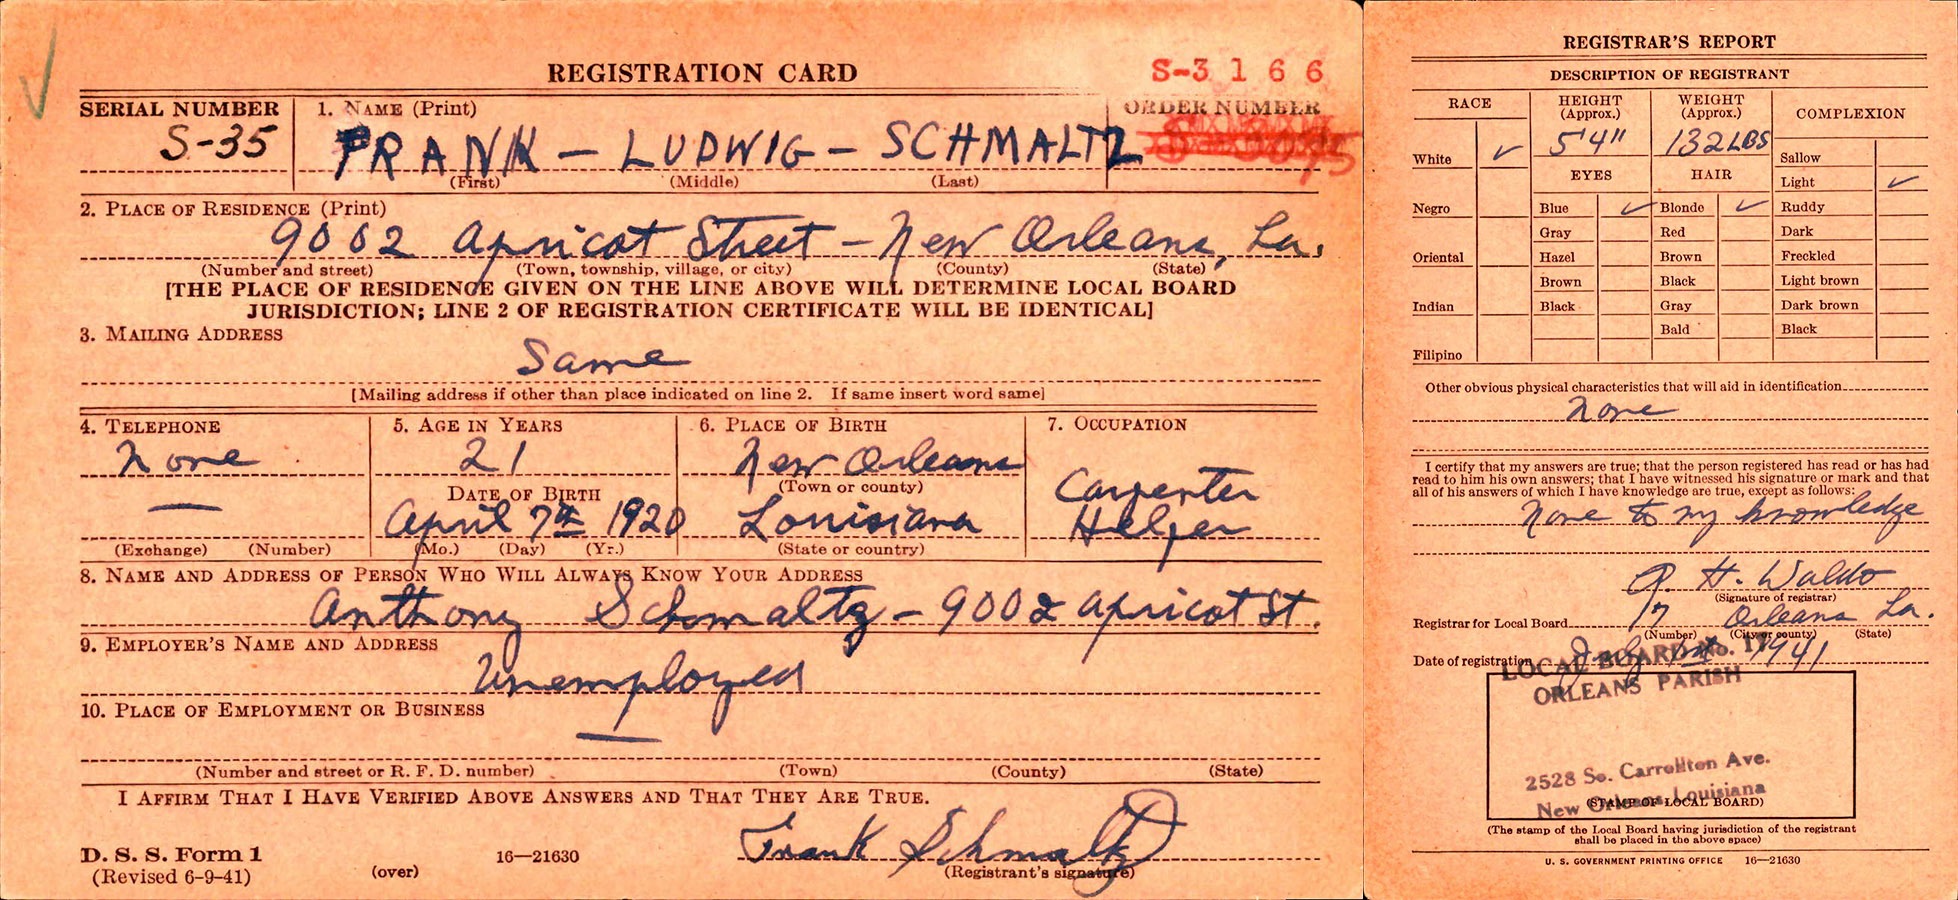 REGISTRATION CARD
S-3 1 6 6
SERIAL NUMBER
S-35
1. NAME (Print)
FRANK — LUDWIG — SCHMALTZ
(First) (Middle) (Last)
ORDER NUMBER
2. PLACE OF RESIDENCE (Print)
9002 Apricot Street — New Orleans, La.
(Number and street) (Town, township, village, or city) (County) (State)
[THE PLACE OF RESIDENCE GIVEN ON THE LINE ABOVE WILL DETERMINE LOCAL BOARD
JURISDICTION; LINE 2 OF REGISTRATION CERTIFICATE WILL BE IDENTICAL]
3. MAILING ADDRESS
Same
[Mailing address if other than place indicated on line 2. If same insert word same]
4. TELEPHONE
None
—
(Exchange) (Number)
5. AGE IN YEARS
21
DATE OF BIRTH
April 7th 1920
(Mo.) (Day) (Yr.)
6. PLACE OF BIRTH
New Orleans
(Town or county)
Louisiana
(State or country)
7. OCCUPATION
Carpenter
Helper
8. NAME AND ADDRESS OF PERSON WHO WILL ALWAYS KNOW YOUR ADDRESS
Anthony Schmaltz — 9002 Apricot St.
9. EMPLOYER'S NAME AND ADDRESS
Unemployed
10. PLACE OF EMPLOYMENT OR BUSINESS
—
(Number and street or R. F. D. number) (Town) (County) (State)
I AFFIRM THAT I HAVE VERIFIED ABOVE ANSWERS AND THAT THEY ARE TRUE.
Frank Schmaltz
(Registrant's signature)
D. S. S. Form 1
(Revised 6-9-41)
(over)
16—21630
REGISTRAR'S REPORT
DESCRIPTION OF REGISTRANT
RACE
White ✓
Negro
Oriental
Indian
Filipino
HEIGHT
(Approx.)
5'4"
EYES
Blue ✓
Gray
Hazel
Brown
Black
WEIGHT
(Approx.)
132 LBS
HAIR
Blonde ✓
Red
Brown
Black
Gray
Bald
COMPLEXION
Sallow
Light ✓
Ruddy
Dark
Freckled
Light brown
Dark brown
Black
Other obvious physical characteristics that will aid in identification
None
I certify that my answers are true; that the person registered has read or has had
read to him his own answers; that I have witnessed his signature or mark and that
all of his answers of which I have knowledge are true, except as follows:
None to my knowledge
H. Waldo
(Signature of registrar)
Registrar for Local Board 17 Orleans La.
(Number) (City or county) (State)
Date of registration July 1st 1941
LOCAL BOARD No. 17
ORLEANS PARISH
2528 So. Carrollton Ave.
New Orleans, Louisiana
(STAMP OF LOCAL BOARD)
(The stamp of the Local Board having jurisdiction of the registrant
shall be placed in the above space)
U. S. GOVERNMENT PRINTING OFFICE 16—21630